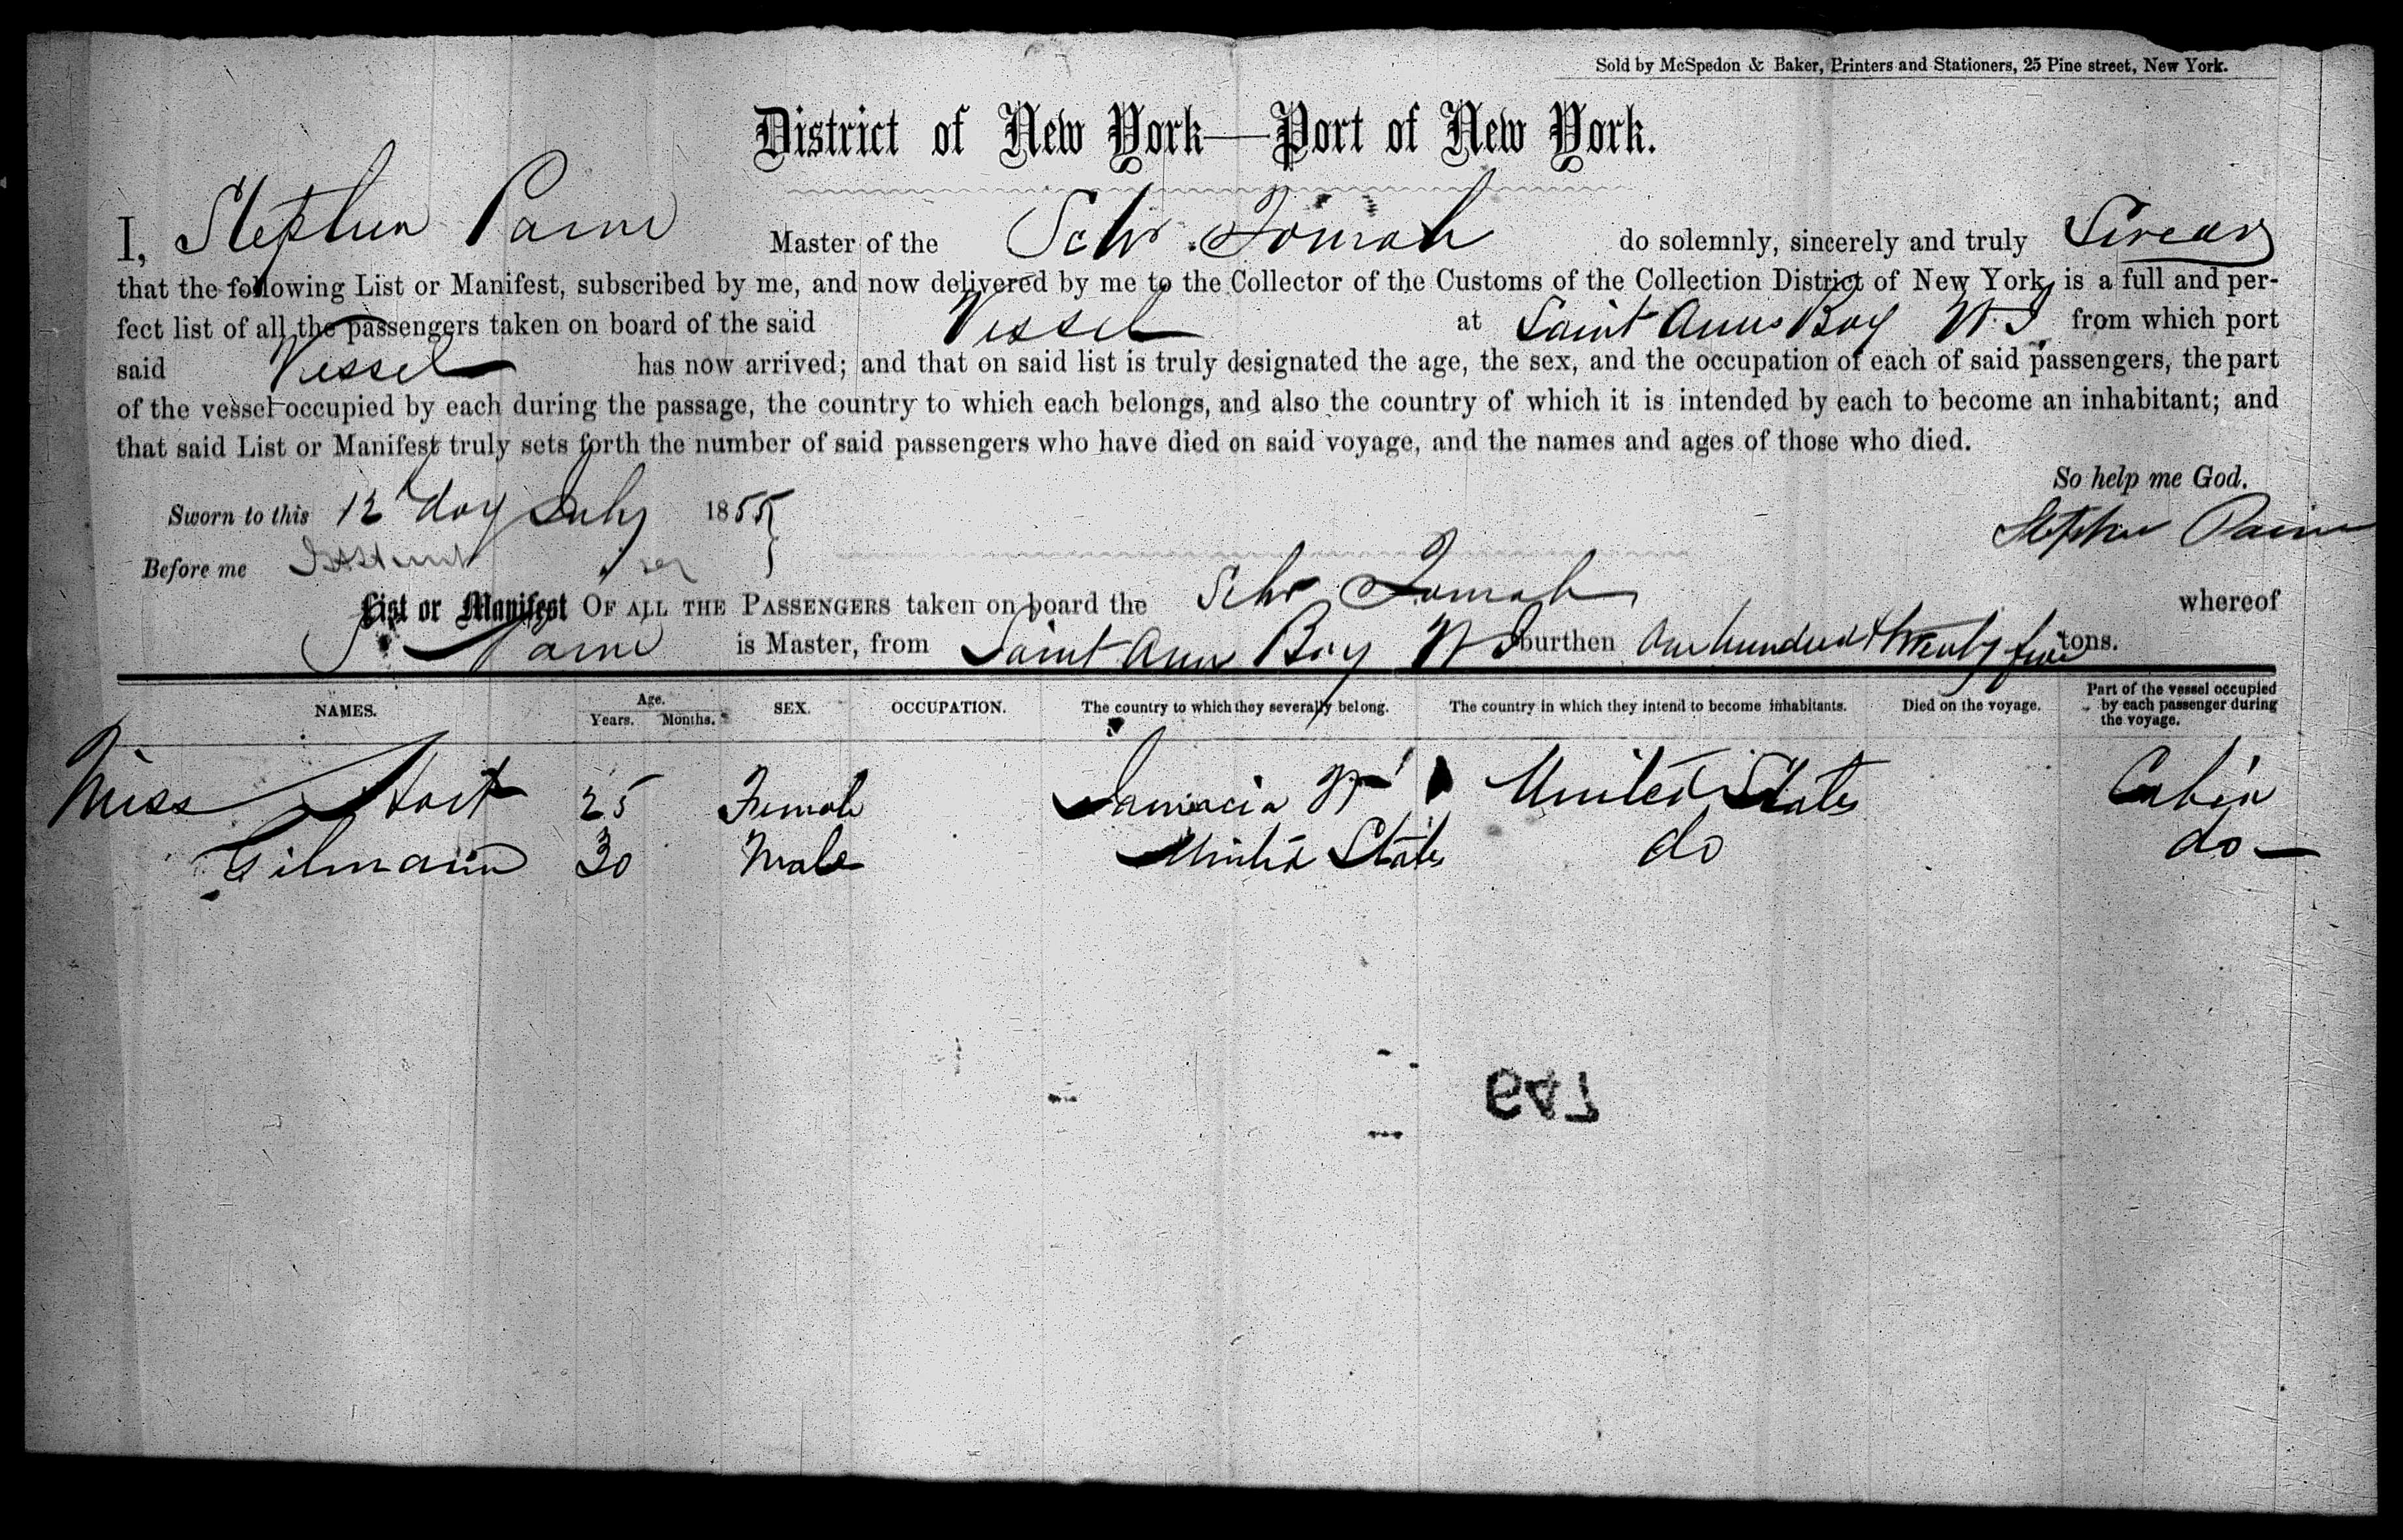 Sold by McSpedon & Baker, Printers and Stationers, 25 Pine street, New York.
District of New York—Port of New York.
I, Stephen Paine Master of the Schr. Tomah do solemnly, sincerely and truly Swear
that the following List or Manifest, subscribed by me, and now delivered by me to the Collector of the Customs of the Collection District of New York, is a full and per-
fect list of all the passengers taken on board of the said Vessel at Saint Anns Bay W. I from which port
said Vessel has now arrived; and that on said list is truly designated the age, the sex, and the occupation of each of said passengers, the part
of the vessel occupied by each during the passage, the country to which each belongs, and also the country of which it is intended by each to become an inhabitant; and
that said List or Manifest truly sets forth the number of said passengers who have died on said voyage, and the names and ages of those who died.
So help me God.
Sworn to this 12 day July 1855
Stephen Paine
Before me
List or Manifest OF ALL THE PASSENGERS taken on board the Schr Tomah whereof
S Paine is Master, from Saint Ann Bay W I burthen One hundred & twenty five tons.
NAMES. Age. Years. Months. SEX. OCCUPATION. The country to which they severally belong. The country in which they intend to become inhabitants. Died on the voyage. Part of the vessel occupied by each passenger during the voyage.
Miss Hoit 25 Female Jamacia W I United States Cabin
Gilmann 30 Male United States do do